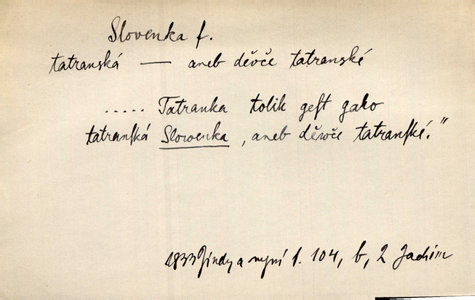 Slovenka f.
tatranská — aneb děvče tatranské
..... Tatranka tolik gest gako
tatranſká Slowenka, aneb děwče tatranſké."
1833 Jindy a nyní 1. 104, b, 2 Jachim